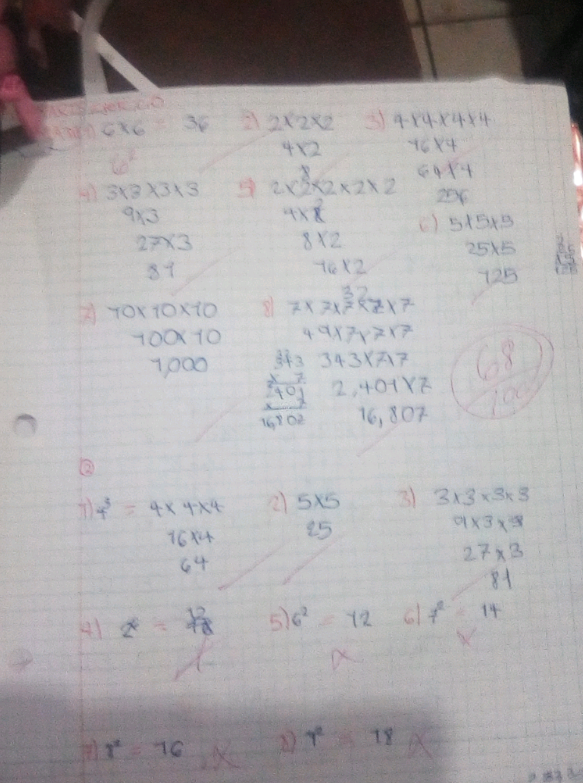 1) 6x6 = 36 2) 2x2x2 3) 4x4x4x4
6² 4x2 16x4
8 64x4
256
4) 3x3x3x3 5) 2x2x2x2x2
9x3 4x2
27x3 8x2
81 16x2
32
6) 5x5x5
25x5
125
7) 10x10x10 8) 7x7x7x7x7
100x10 49x7x7x7
1,000 343x7x7
2,401x7
16,807
343
x 7
2401
x 7
16,807
68
100
②
1) 4³ = 4x4x4 2) 5x5 3) 3x3x3x3
16x4 25 9x3x3
64 27x3
81
4) 5) 6² = 12 6) 7² = 14
7) 8² = 16 8) 9² = 18